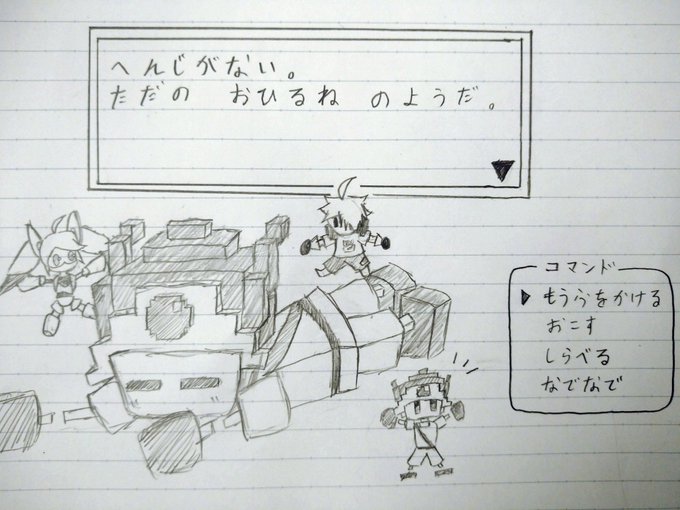 へんじがない。
ただの　おひるね　のようだ。
コマンド
もうふをかける
おこす
しらべる
なでなで